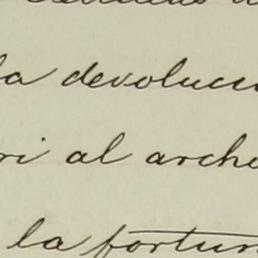 la devolucci
ri al arche
la fortun